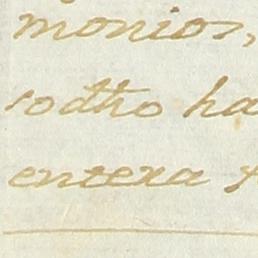 monios,
sodtho ha
entexa